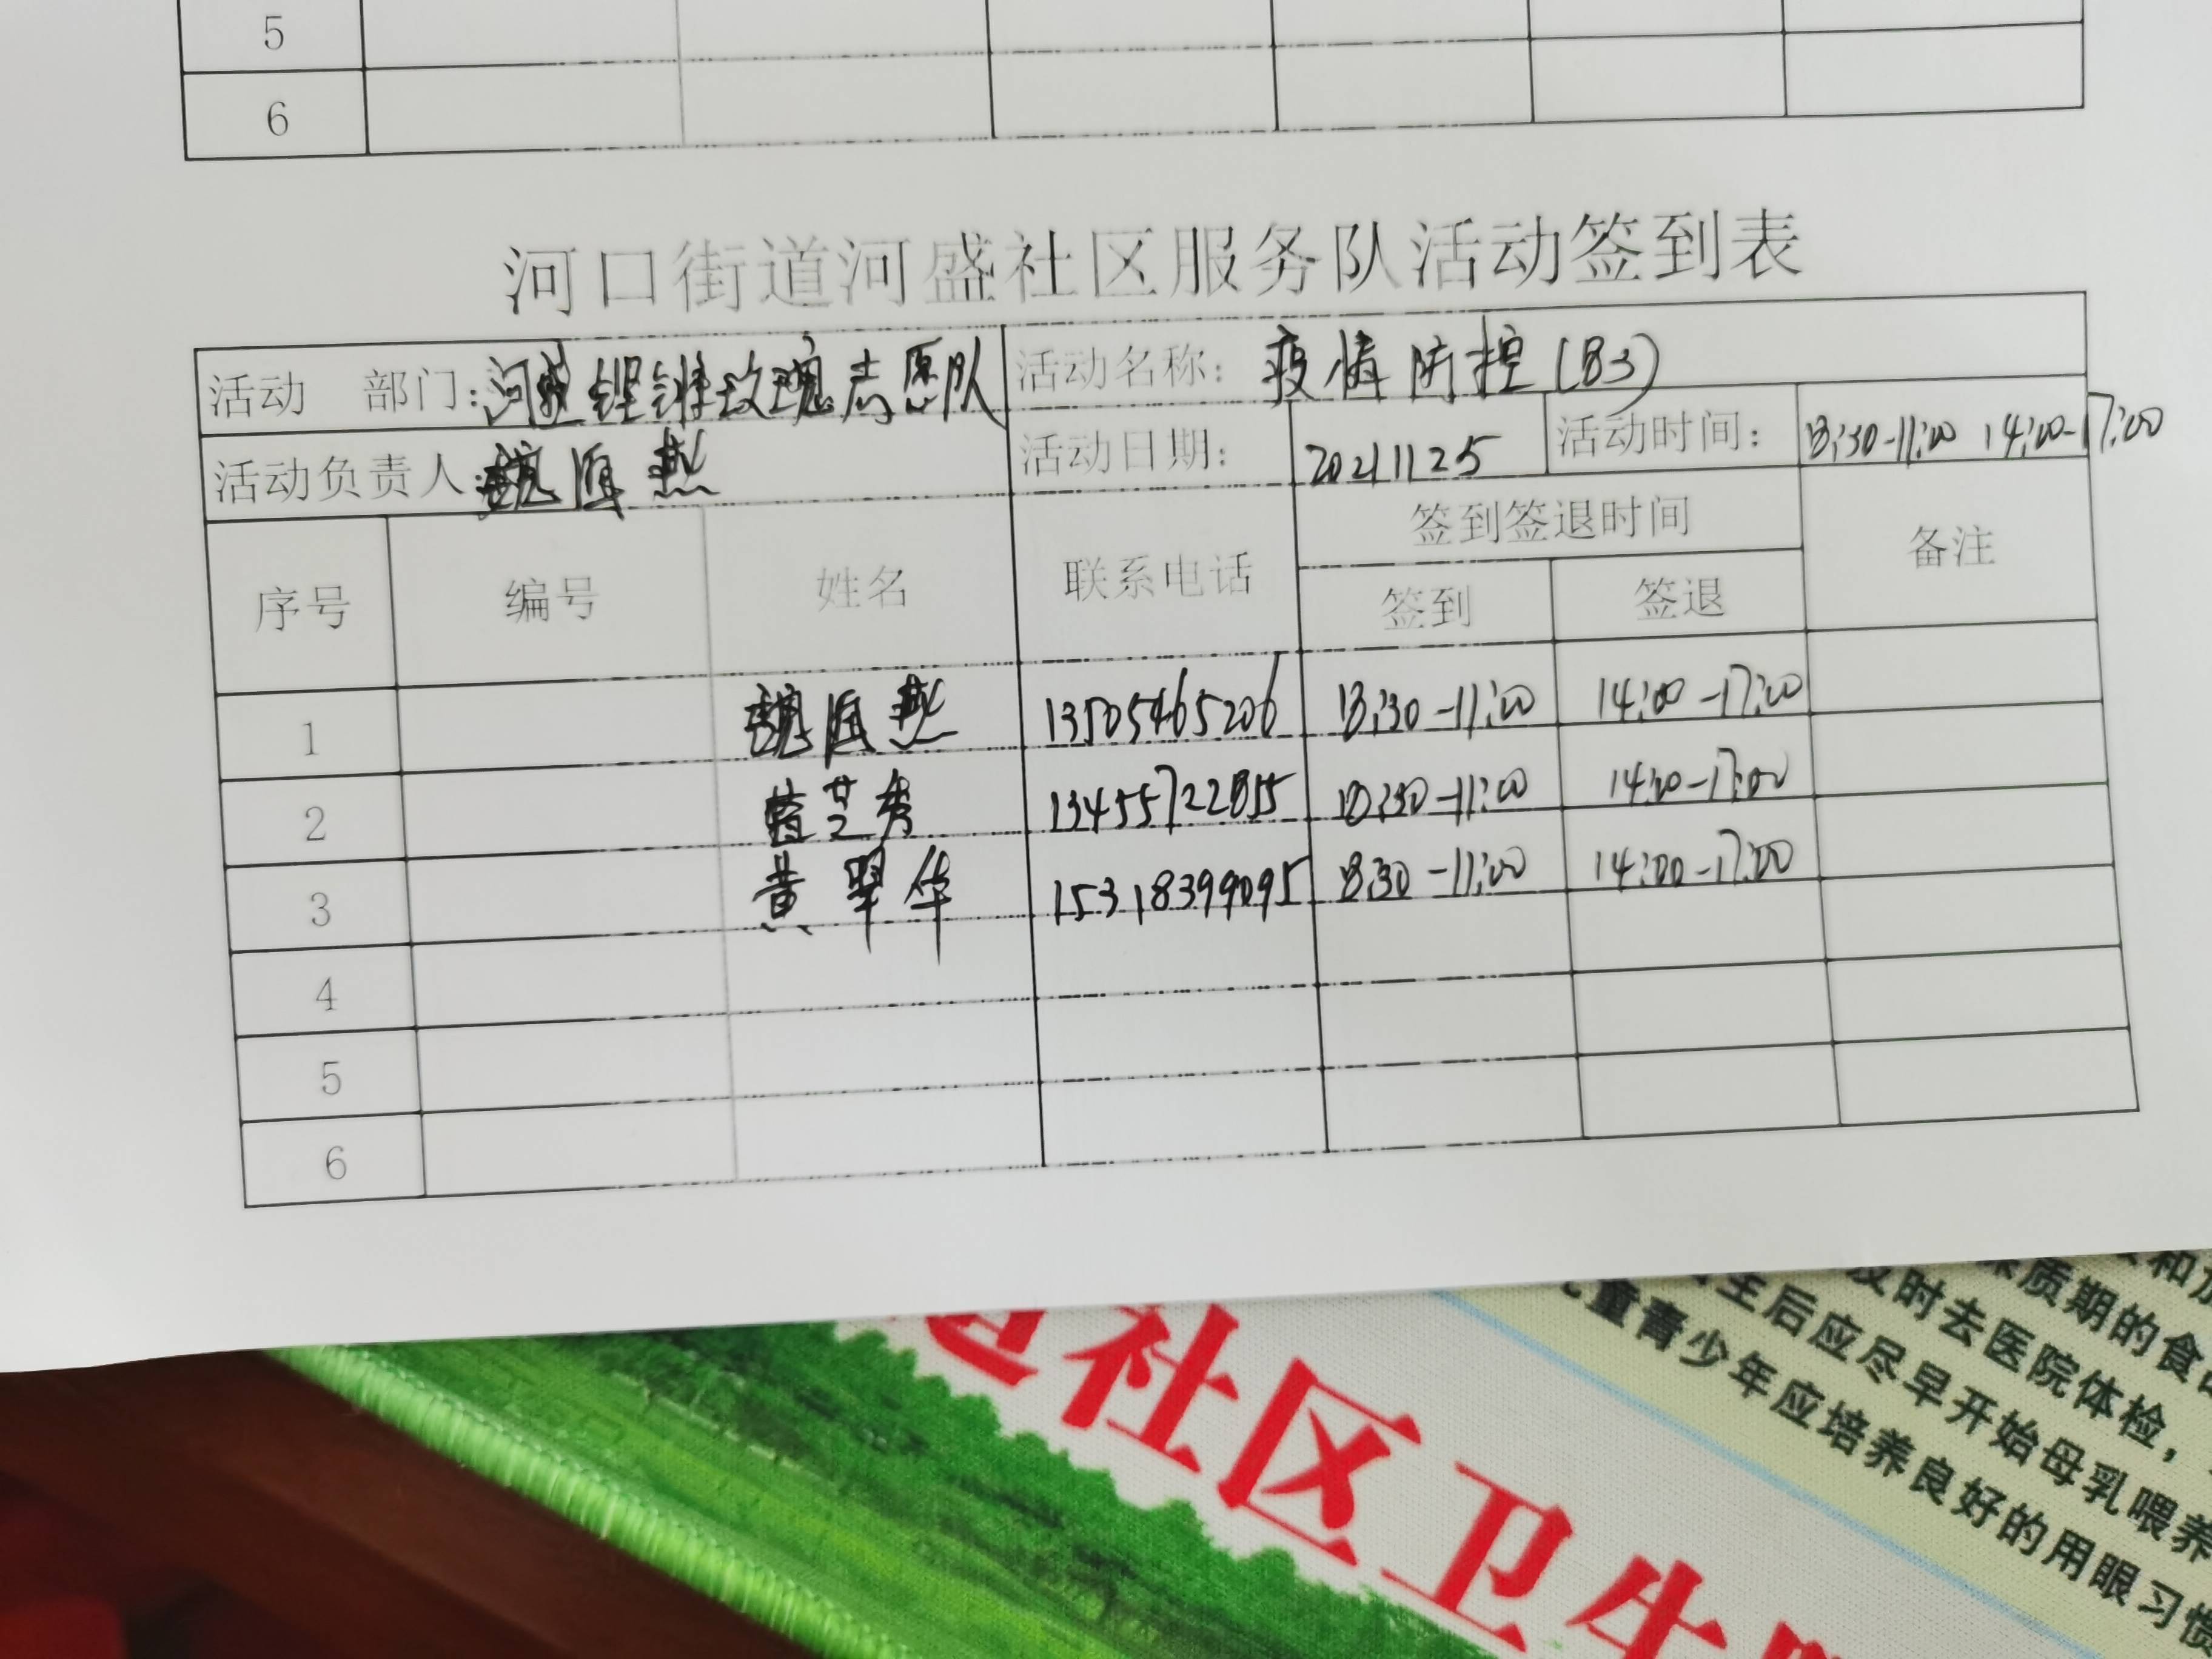 5
6
河口街道河盛社区服务队活动签到表
活动 部门：河盛铿锵玫瑰志愿队 活动名称：疫情防控（B3）
活动负责人：魏海燕 活动日期：20211125 活动时间：8:30-11:00 14:00-17:00
序号 编号 姓名 联系电话 签到签退时间 备注
签到 签退
1 魏海燕 13505465206 8:30-11:00 14:00-17:00
2 芝秀 13455722855 8:30-11:00 14:00-17:00
3 黄翠华 15318399095 8:30-11:00 14:00-17:00
4
5
6
社区卫生
和
质期的食
及时去医院体检，
生后应尽早开始母乳喂养
童青少年应培养良好的用眼习惯